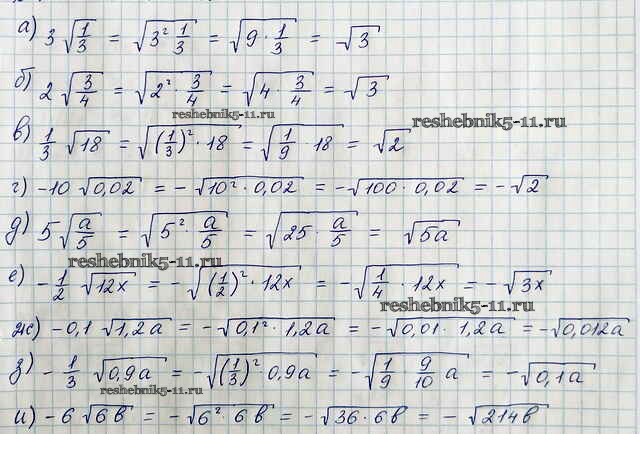 а) 3 √(1/3) = √(3² 1/3) = √(9 · 1/3) = √3
б) 2 √(3/4) = √(2² · 3/4) = √(4 · 3/4) = √3
reshebnik5-11.ru
reshebnik5-11.ru
в) 1/3 √18 = √((1/3)² · 18) = √(1/9 · 18) = √2
г) -10 √0,02 = -√(10² · 0,02) = -√(100 · 0,02) = -√2
д) 5 √(a/5) = √(5² · a/5) = √(25 · a/5) = √5a
reshebnik5-11.ru
е) -1/2 √12x = -√((1/2)² · 12x) = -√(1/4 · 12x) = -√3x
reshebnik5-11.ru
ж) -0,1 √1,2a = -√(0,1² · 1,2a) = -√(0,01 · 1,2a) = -√0,012a
з) -1/3 √0,9a = -√((1/3)² · 0,9a) = -√(1/9 9/10 a) = -√0,1a
reshebnik5-11.ru
и) -6 √6b = -√(6² · 6b) = -√(36 · 6b) = -√214b